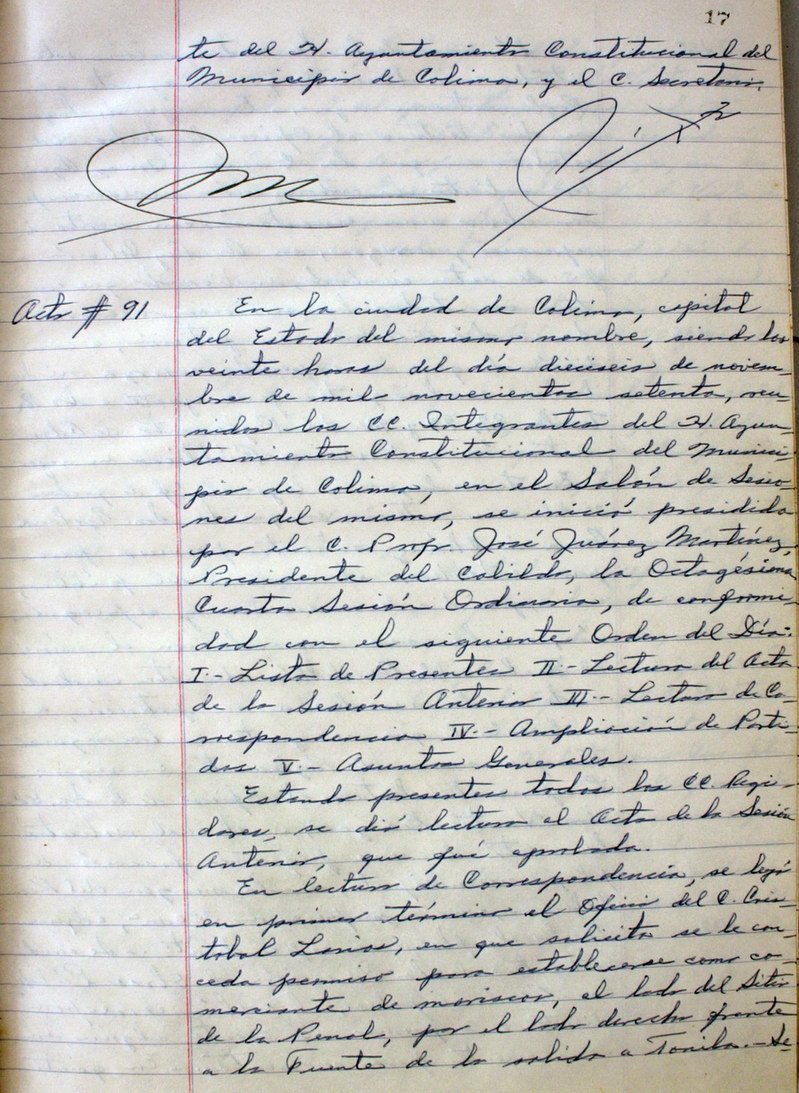 17
te del H. Ayuntamiento Constitucional del
Municipio de Colima, y el C. Secretario.
Acta # 91
En la ciudad de Colima, capital
del Estado del mismo nombre, siendo las
veinte horas del día dieciseis de noviem-
bre de mil novecientos setenta, reu-
nidos los CC. Integrantes del H. Ayun-
tamiento Constitucional del Munici-
pio de Colima, en el Salón de Sesio-
nes del mismo, se inició presidida
por el C. Profr. José Juárez Martínez,
Presidente del Cabildo, la Octagésima
Cuarta Sesión Ordinaria, de conformi-
dad con el siguiente Orden del Día:
I.- Lista de Presentes II.- Lectura del Acta
de la Sesión Anterior III.- Lectura de Co-
rrespondencia IV.- Ampliación de Parti-
das V.- Asuntos Generales.
Estando presentes todos los CC. Regi-
dores, se dió lectura al Acta de la Sesión
Anterior, que fué aprobada.
En lectura de Correspondencia, se leyó
en primer término el Oficio del C. Cris-
tobal Larios, en que solicita se le con-
ceda permiso para establecerse como co-
merciante de mariscos, al lado del Sitio
de la Penal, por el lado derecho frente
a la Fuente de la salida a Tonila.- Se